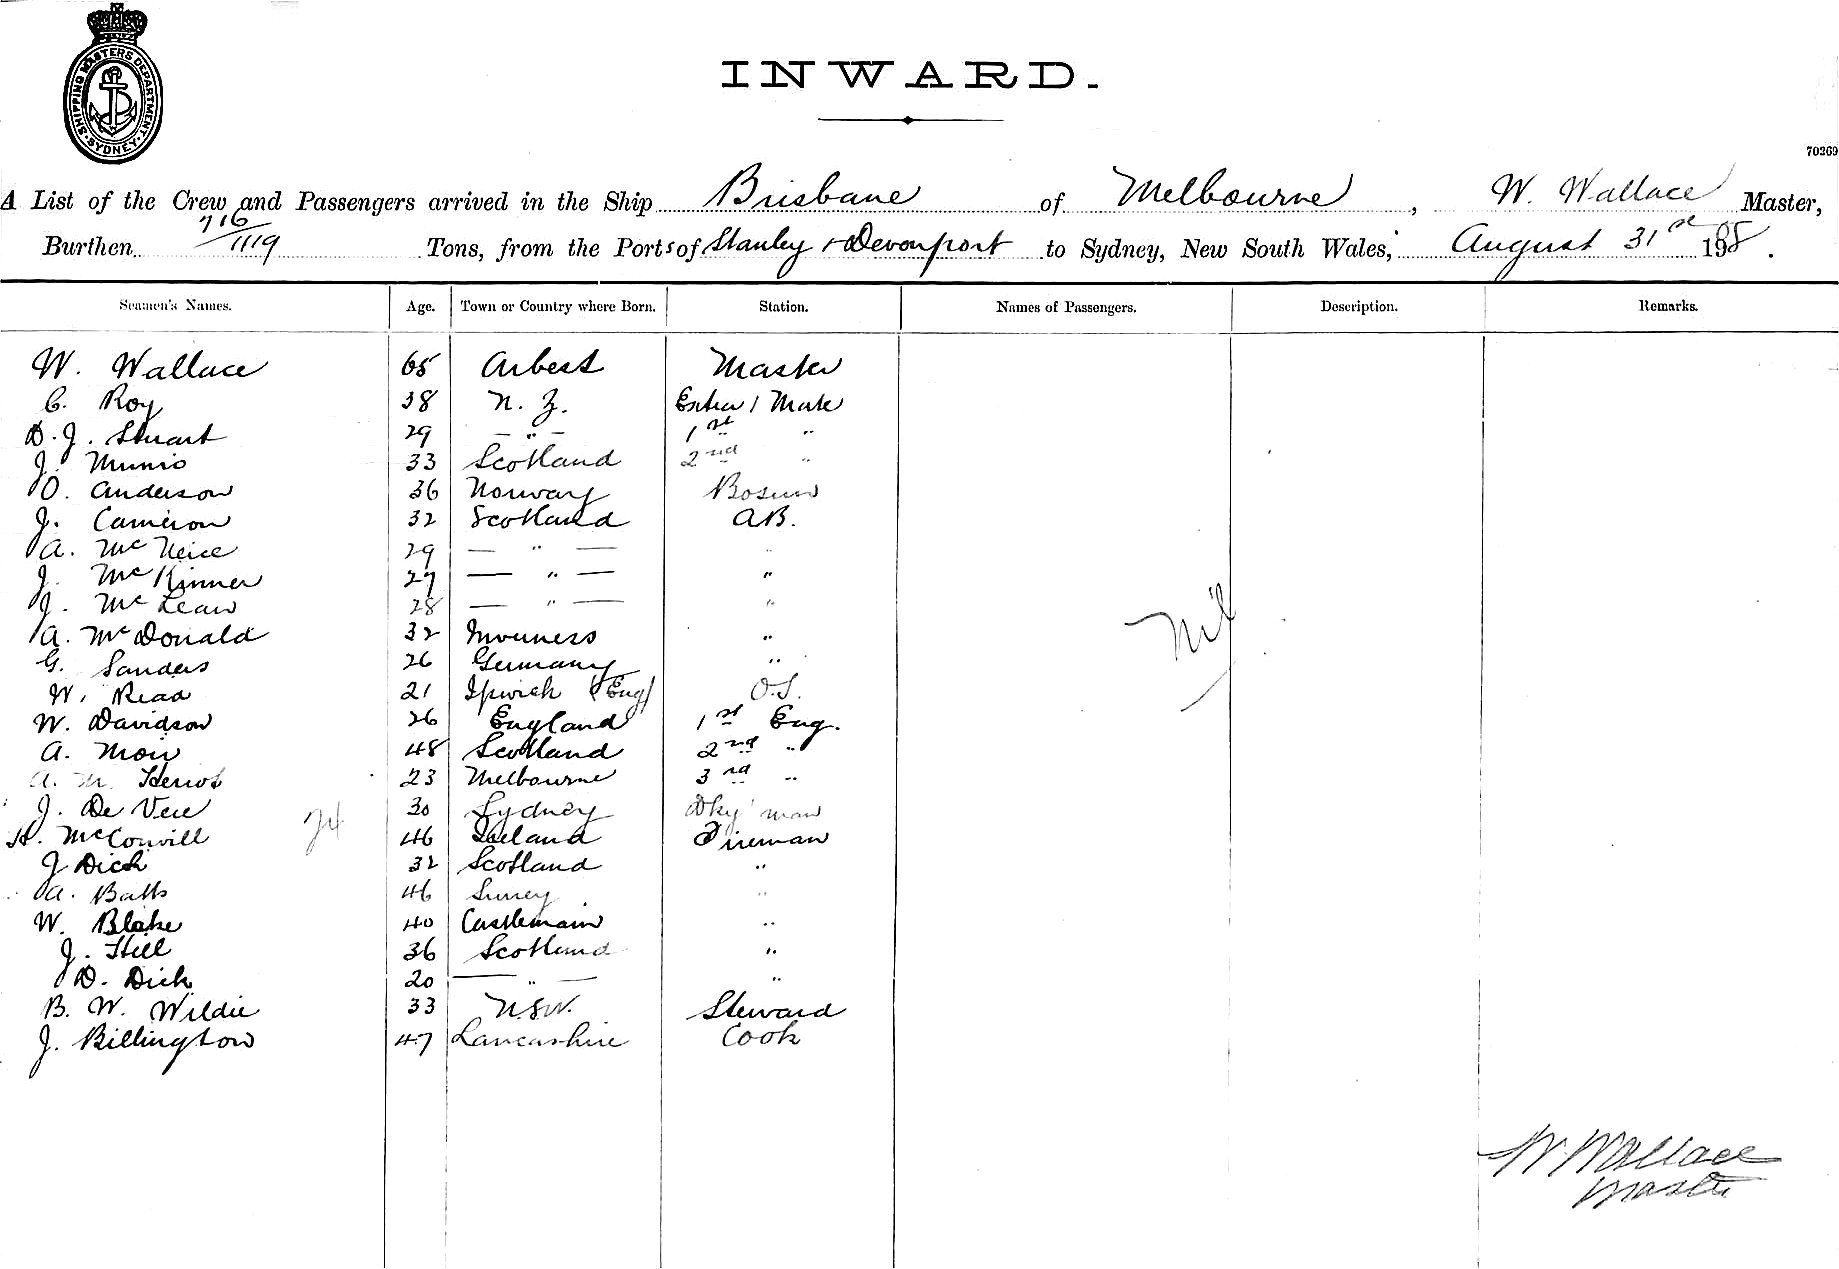 SHIPPING MASTERS DEPARTMENT
SYDNEY
INWARD.
70269
A List of the Crew and Passengers arrived in the Ship Brisbane of Melbourne, W. Wallace Master,
Burthen 716/1119 Tons, from the Ports of Stanley & Devonport to Sydney, New South Wales, August 31st 1908.
Seamen's Names. Age. Town or Country where Born. Station. Names of Passengers. Description. Remarks.
W. Wallace 65 Master
C. Roy 38 N. Z. Extra 1 Mate
D. J. Stuart 29 — " — 1st "
J. Munro 33 Scotland 2nd "
O. Anderson 36 Norway Bosun
J. Cameron 32 Scotland AB.
A. McNeice 29 — " — "
J. McKinner 27 — " — "
J. McLean 28 — " — "
A. McDonald 32 Inverness "
G. Sanders 26 Germany "
Nil
W. Read 21 Ipwich (Eng) O.S.
W. Davidson 26 England 1st Eng.
A. Moir 48 Scotland 2nd "
A. M. Heriot 23 Melbourne 3rd "
J. De Vere 30 Sydney Dky man
24
H. McConvill 46 Ireland Fireman
J Dick 32 Scotland "
A. Batts 46 Surrey "
W. Blake 40 Castlemain "
J. Hill 36 Scotland "
D. Dick 20 — " — "
B. W. Wildie 33 N.S.W. Steward
J. Billington 47 Lancashire Cook
W Wallace
Master